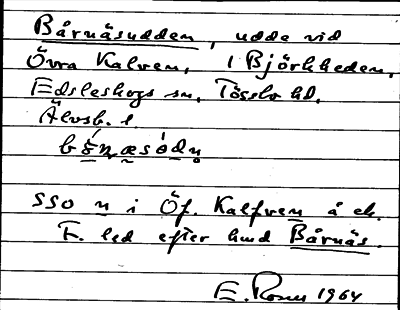 Bårnäsudden, udde vid
Övra Kalven, i Björkheden,
Edsleskogs sn, Tösslo hd,
Älvsb. l.
sso n i Öf. Kalfven å ek.
F. led efter hmd Bårnäs.
E. Rosen 1964